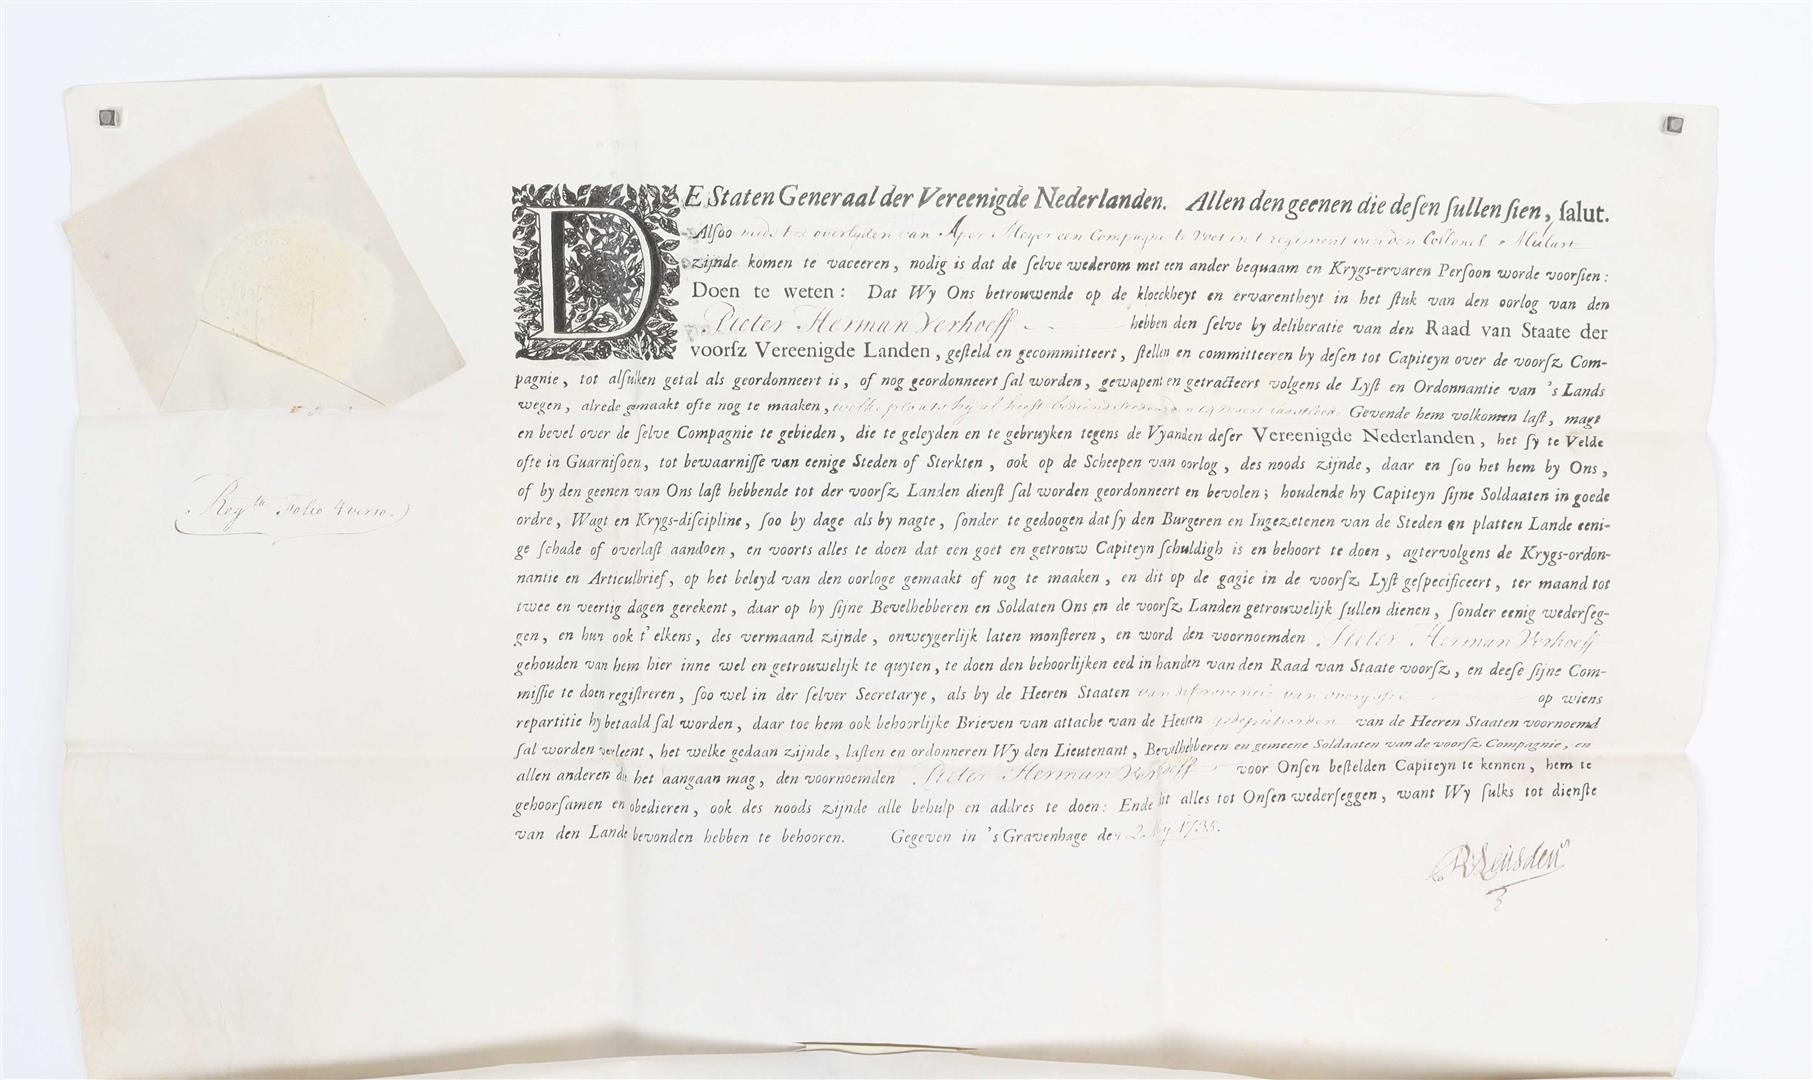 DE Staten Generaal der Vereenigde Nederlanden. Allen den geenen die deſen ſullen ſien, ſalut.
Alſoo overlyden van Aper Meyer een Compagnie te voet in t regiment van den Collonel Mulart
zijnde komen te vaceeren, nodig is dat de ſelve wederom met een ander bequaam en Krygs-ervaren Perſoon worde voorſien:
Doen te weten: Dat Wy Ons betrouwende op de kloeckheyt en ervarentheyt in het ſtuk van den oorlog van den
Pieter Herman Verhoeff hebben den ſelve by deliberatie van den Raad van Staate der
voorſz Vereenigde Landen, geſteld en gecommitteert, ſtellen en committeeren by deſen tot Capiteyn over de voorſz Com-
pagnie, tot alſulken getal als geordonneert is, of nog geordonneert ſal worden, gewapent en getracteert volgens de Lyſt en Ordonnantie van 's Lands
wegen, alrede gemaakt ofte nog te maaken, welke plaats hij al heeft bedient Gevende hem volkomen laſt, magt
en bevel over de ſelve Compagnie te gebieden, die te geleyden en te gebruyken tegens de Vyanden deſer Vereenigde Nederlanden, het ſy te Velde
ofte in Guarniſoen, tot bewaarniſſe van eenige Steden of Sterkten, ook op de Scheepen van oorlog, des noods zijnde, daar en ſoo het hem by Ons,
of by den geenen van Ons laſt hebbende tot der voorſz Landen dienſt ſal worden geordonneert en bevolen; houdende hy Capiteyn ſijne Soldaaten in goede
Reg^ta Folio 4 verso.
ordre, Wagt en Krygs-diſcipline, ſoo by dage als by nagte, ſonder te gedoogen dat ſy den Burgeren en Ingezetenen van de Steden en platten Lande eeni-
ge ſchade of overlaſt aandoen, en voorts alles te doen dat een goet en getrouw Capiteyn ſchuldigh is en behoort te doen, agtervolgens de Krygs-ordon-
nantie en Articulbrief, op het beleyd van den oorloge gemaakt of nog te maaken, en dit op de gagie in de voorſz Lyſt geſpecificeert, ter maand tot
twee en veertig dagen gerekent, daar op hy ſijne Bevelhebberen en Soldaten Ons en de voorſz Landen getrouwelijk ſullen dienen, ſonder eenig wederſeg-
gen, en hun ook t'elkens, des vermaand zijnde, onweygerlijk laten monſteren, en word den voornoemden Pieter Herman Verhoeff
gehouden van hem hier inne wel en getrouwelijk te quyten, te doen den behoorlijken eed in handen van den Raad van Staate voorſz, en deeſe ſijne Com-
miſſie te doen regiſtreren, ſoo wel in der ſelver Secretarye, als by de Heeren Staaten van de provincie van overyssel op wiens
repartitie hy betaald ſal worden, daar toe hem ook behoorlijke Brieven van attache van de Heeren gedeputeerden van de Heeren Staaten voornoemd
ſal worden verleent, het welke gedaan zijnde, laſten en ordonneren Wy den Lieutenant, Bevelhebberen en gemeene Soldaaten van de voorſz Compagnie, en
allen anderen die het aangaan mag, den voornoemden Pieter Herman Verhoeff voor Onſen beſtelden Capiteyn te kennen, hem te
gehoorſamen en obedieren, ook des noods zijnde alle behulp en addres te doen: Ende dit alles tot Onſen wederſeggen, want Wy ſulks tot dienſte
van den Lande bevonden hebben te behooren. Gegeven in 's Gravenhage den 2. Mij 1735.